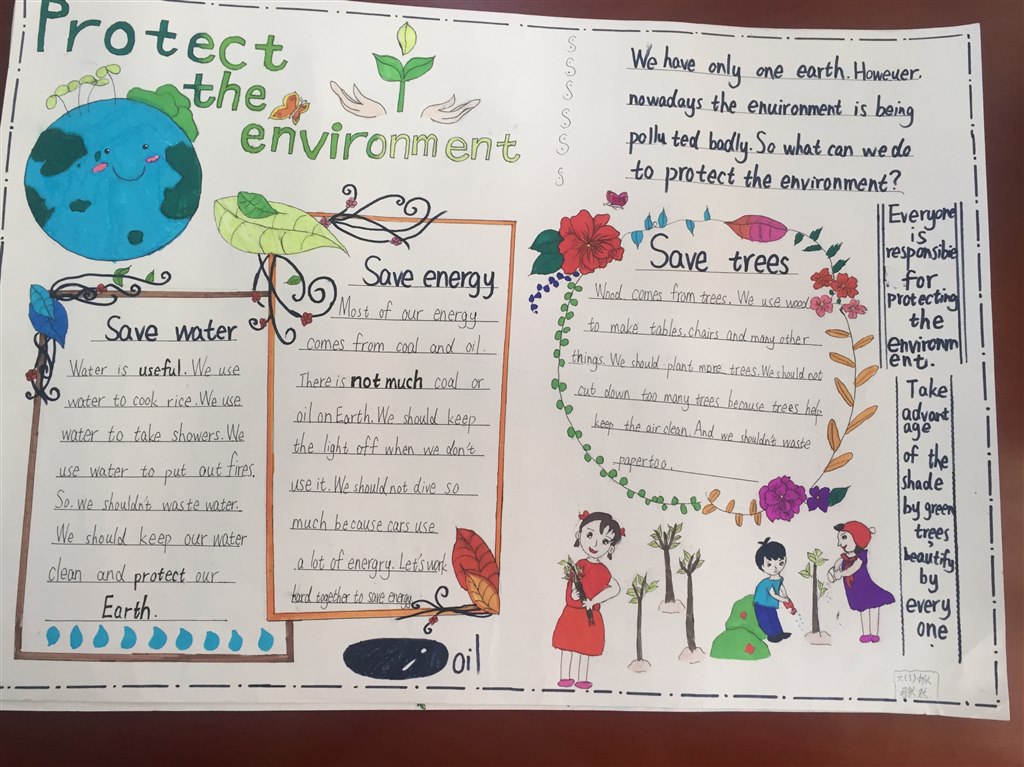 Protect
the
environment
We have only one earth. However.
nowadays the environment is being
polluted badly. So what can we do
to protect the environment?
Save water
Water is useful. We use
water to cook rice. We use
water to take showers. We
use water to put out fires.
So. we shouldn't waste water.
We should keep our water
clean and protect our
Earth.
Save energy
Most of our energy
comes from coal and oil.
There is not much coal or
oil on Earth. We should keep
the light off when we don't
use it. We should not dive so
much because cars use
a lot of energry. Let's work
hard together to save energy.
oil
Save trees
Wood comes from trees. We use wood
to make tables. chairs and many other
things. We should plant more trees. We should not
cut down too many trees because trees help
keep the air clean. And we shouldn't waste
paper too.
Everyone
is
responsible
for
protecting
the
environm
ent.
Take
advant
age
of the
shade
by green
trees
beautify
by
every
one.